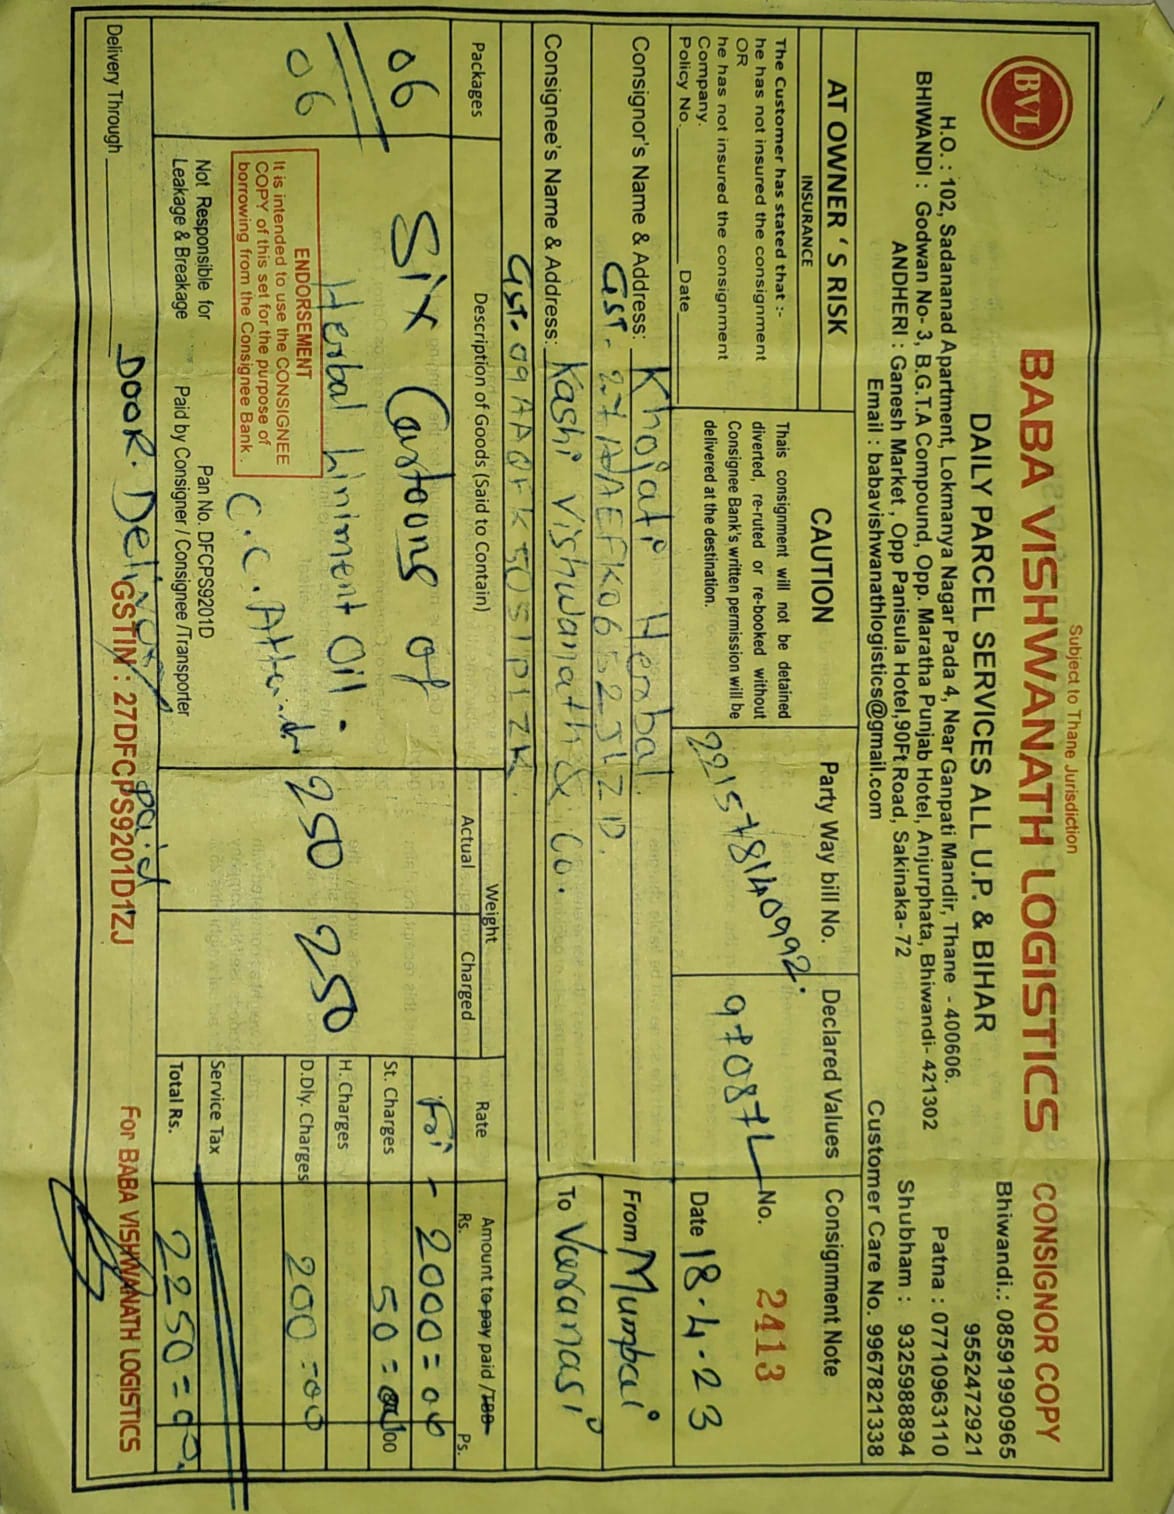 Subject to Thane Jurisdiction
BVL
BABA VISHWANATH LOGISTICS
CONSIGNOR COPY
DAILY PARCEL SERVICES ALL U.P. & BIHAR
H.O. : 102, Sadanand Apartment, Lokmanya Nagar Pada 4, Near Ganpati Mandir, Thane - 400606.
BHIWANDI : Godwan No- 3, B.G.T.A Compound, Opp. Maratha Punjab Hotel, Anjurphata, Bhiwandi- 421302
ANDHERI : Ganesh Market , Opp Panisula Hotel,90Ft Road, Sakinaka- 72
Email : babavishwanathlogistics@gmail.com
Bhiwandi.: 08591990965
9552472921
Patna : 07710963110
Shubham : 9325988894
Customer Care No. 9967821338
AT OWNER 'S RISK
INSURANCE
The Customer has stated that :-
he has not insured the consignment
OR
he has not insured the consignment
Company.
Policy No. Date
CAUTION
Thais consignment will not be detained
diverted, re-ruted or re-booked without
Consignee Bank's written permission will be
delivered at the destination.
Party Way bill No.
221578140992.
Declared Values
97087L
Consignment Note
No. 2413
Date 18.4.23
Consignor's Name & Address: Khojati Herbal.
GST. 27AAEFK0652J1ZD.
From Mumbai
Consignee's Name & Address: Kashi Vishwanath & Co.
GST. 09AAOFK5051P1ZK.
To Varanasi
Packages
Description of Goods (Said to Contain)
Weight
Actual
Charged
Rate
Amount to pay paid /TBB
Rs. Ps.
06
Six Cartoons of
Herbal Liniment Oil.
06
C.C. Attend
250
250
Fri - 2000=00
St. Charges 50=00
H. Charges
D.Dly. Charges 200=00
Service Tax
Total Rs. 2250=00.
ENDORSEMENT
It is intended to use the CONSIGNEE
COPY of this set for the purpose of
borrowing from the Consignee Bank .
Not Responsible for
Leakage & Breakage
Pan No. DFCPS9201D
Paid by Consigner / Consignee /Transporter
Delivery Through DOOR. Delivery paid
GSTIN : 27DFCPS9201D1ZJ
For BABA VISHWANATH LOGISTICS